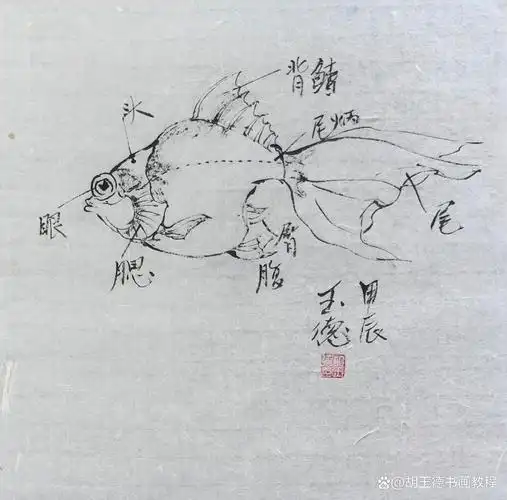 背鰭
尾炳
头
眼
尾
腮
臀
腹
甲辰
玉德
胡玉德书画教程